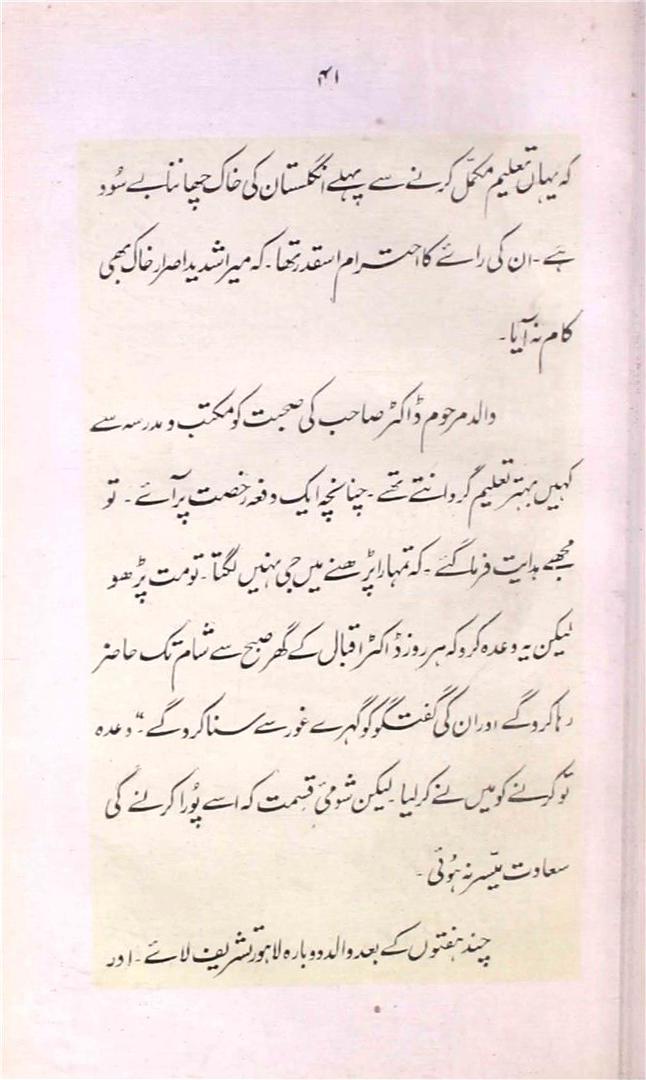 ۴۱
کہ یہاں تعلیم مکمّل کرنے سے پہلے انگلستان کی خاک چھاننا بے سُود
ہے۔ ان کی رائے کا احترام اسقدر تھا۔ کہ میرا شدید اصرار خاک بھی
کام نہ آیا۔
والد مرحوم ڈاکٹر صاحب کی صحبت کو مکتب و مدرسہ سے
کہیں بہتر تعلیم گردانتے تھے۔ چنانچہ ایک دفعہ رخصت پر آئے۔ تو
مجھے ہدایت فرما گئے۔ کہ تمہارا پڑھنے میں جی نہیں لگتا۔ تو مت پڑھو
لیکن یہ وعدہ کرو کہ ہر روز ڈاکٹر اقبال کے گھر صبح سے شام تک حاضر
رہا کرو گے اور ان کی گفتگو کو گہرے غور سے سنا کرو گے۔“ وعدہ
تو کرنے کو میں نے کر لیا۔ لیکن شومئ قسمت کہ اسے پُورا کرنے کی
سعادت میّسر نہ ہُوئی۔
چند ہفتوں کے بعد والد دوبارہ لاہور تشریف لائے۔ اور